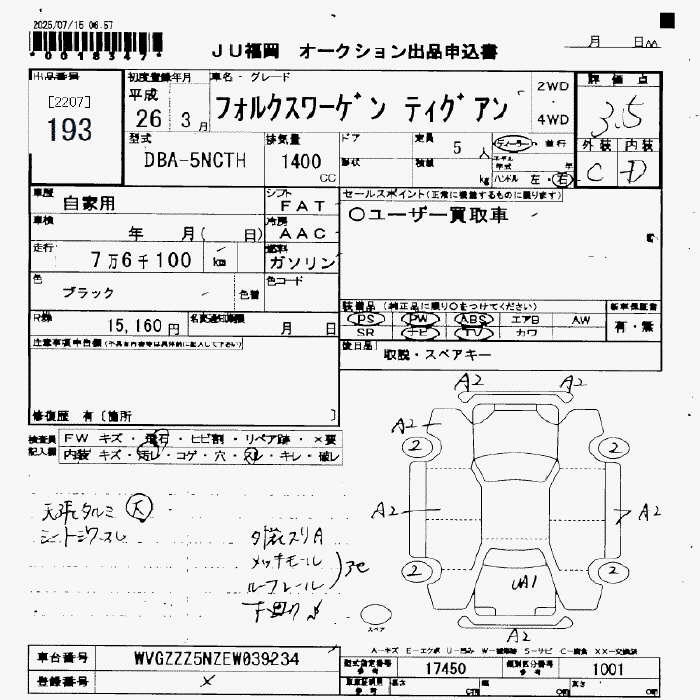 2025/07/15 06.57
*0018347*
JU福岡 オークション出品申込書
月 日
出品番号
[2207]
193
初度登録年月
平成
26 3月
車名・グレード
フォルクスワーゲン ティグアン
2WD
4WD
評価点
3.5
外装 内装
C D
型式
DBA-5NCTH
排気量
1400
CC
ドア
形状
定員
5人
積載
kg
ディーラー・並行
モデル年式 年
ハンドル 左・右
車歴
自家用
シフト
FAT
セールスポイント(正常に機能するものに限ります)
○ユーザー買取車
車検
年 月( 日)
冷房
AAC
走行
7万6千100 km
燃料
ガソリン
色
ブラック
色替
色コード
R券
15,160円
名変通知期限
月 日
装備品(純正品に限り○をつけてください)
PS PW ABS エアB AW
SR ナビ TV カワ
新車保証書
有・無
注意事項申告欄(不具合内容等は具体的に記入して下さい)
後日品
取説・スペアキー
修復歴 有〔箇所 〕
検査員記入欄
FW キズ・飛石・ヒビ割・リペア跡・×要
内装 キズ・汚レ・コゲ・穴・スレ・キレ・破レ
天張タルミ 大
シートシワスレ
外装スリA
メッキモール
ルーフレール
下回り
A2 A2
A2
2 2
A2 A2
2 2
UA1
A2
スペア
A-キズ E-エクボ U-凹み W-補修跡 S-サビ C-腐食 XX-交換済
車台番号
WVGZZZ5NZEW039234
登録番号
×
型式指定番号
参考
17450
類別区分番号
参考
1001
長さ
cm
幅
cm
高さ
cm